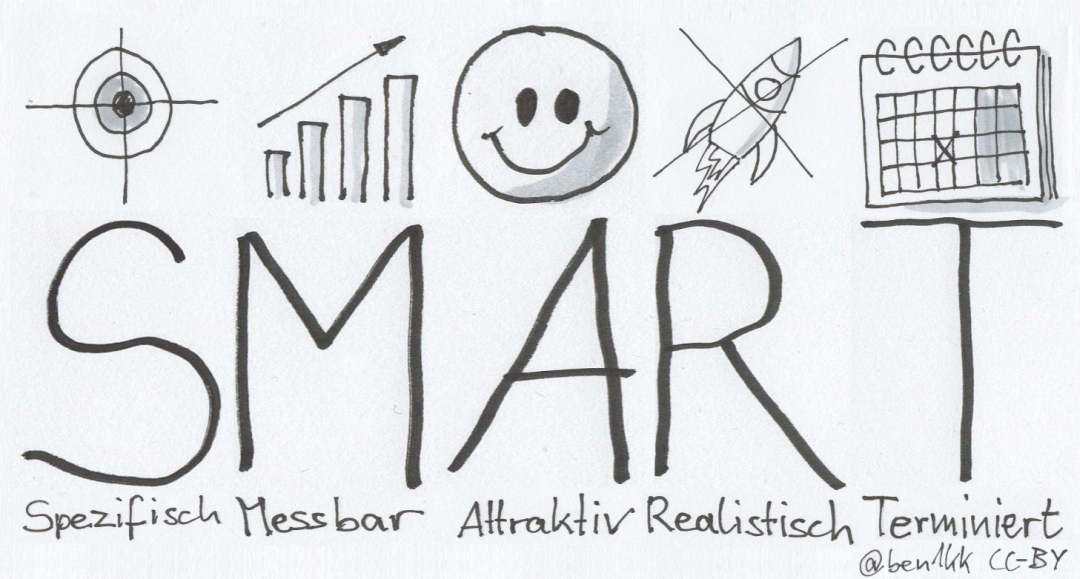 SMART
Spezifisch Messbar Attraktiv Realistisch Terminiert
CC-BY